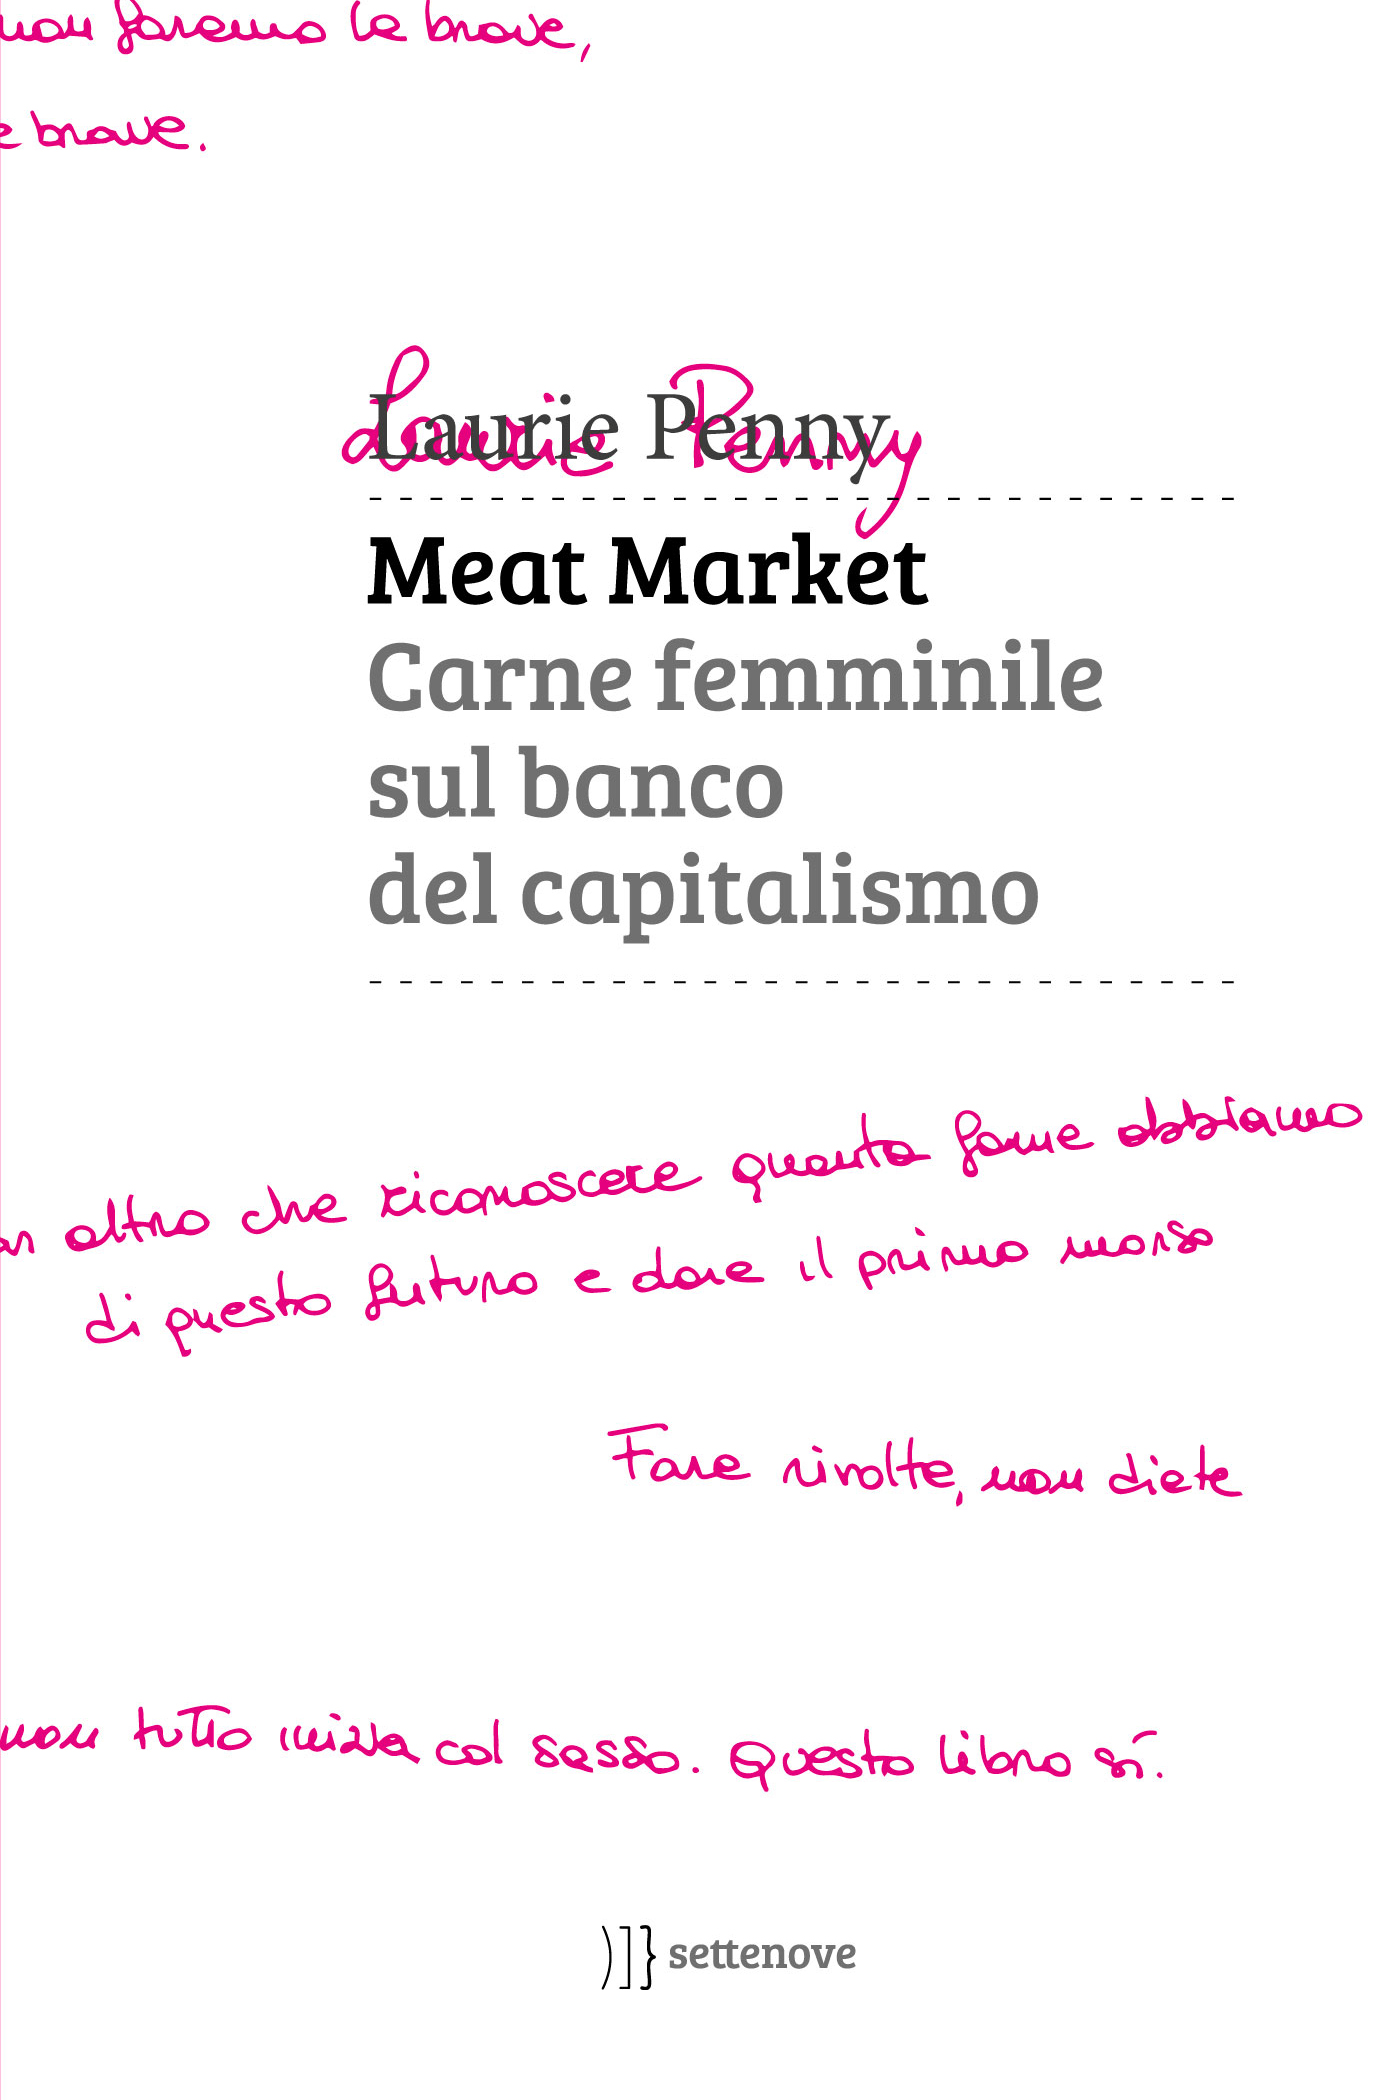 non faremo le brave,
e brave.
Laurie Penny
Laurie Penny
Meat Market
Carne femminile
sul banco
del capitalismo
altro che riconoscere quanta fame abbiamo
di questo futuro e dare il primo morso
Fare rivolte, non diete
non tutto inizia col sesso. Questo libro sì.
)]} settenove